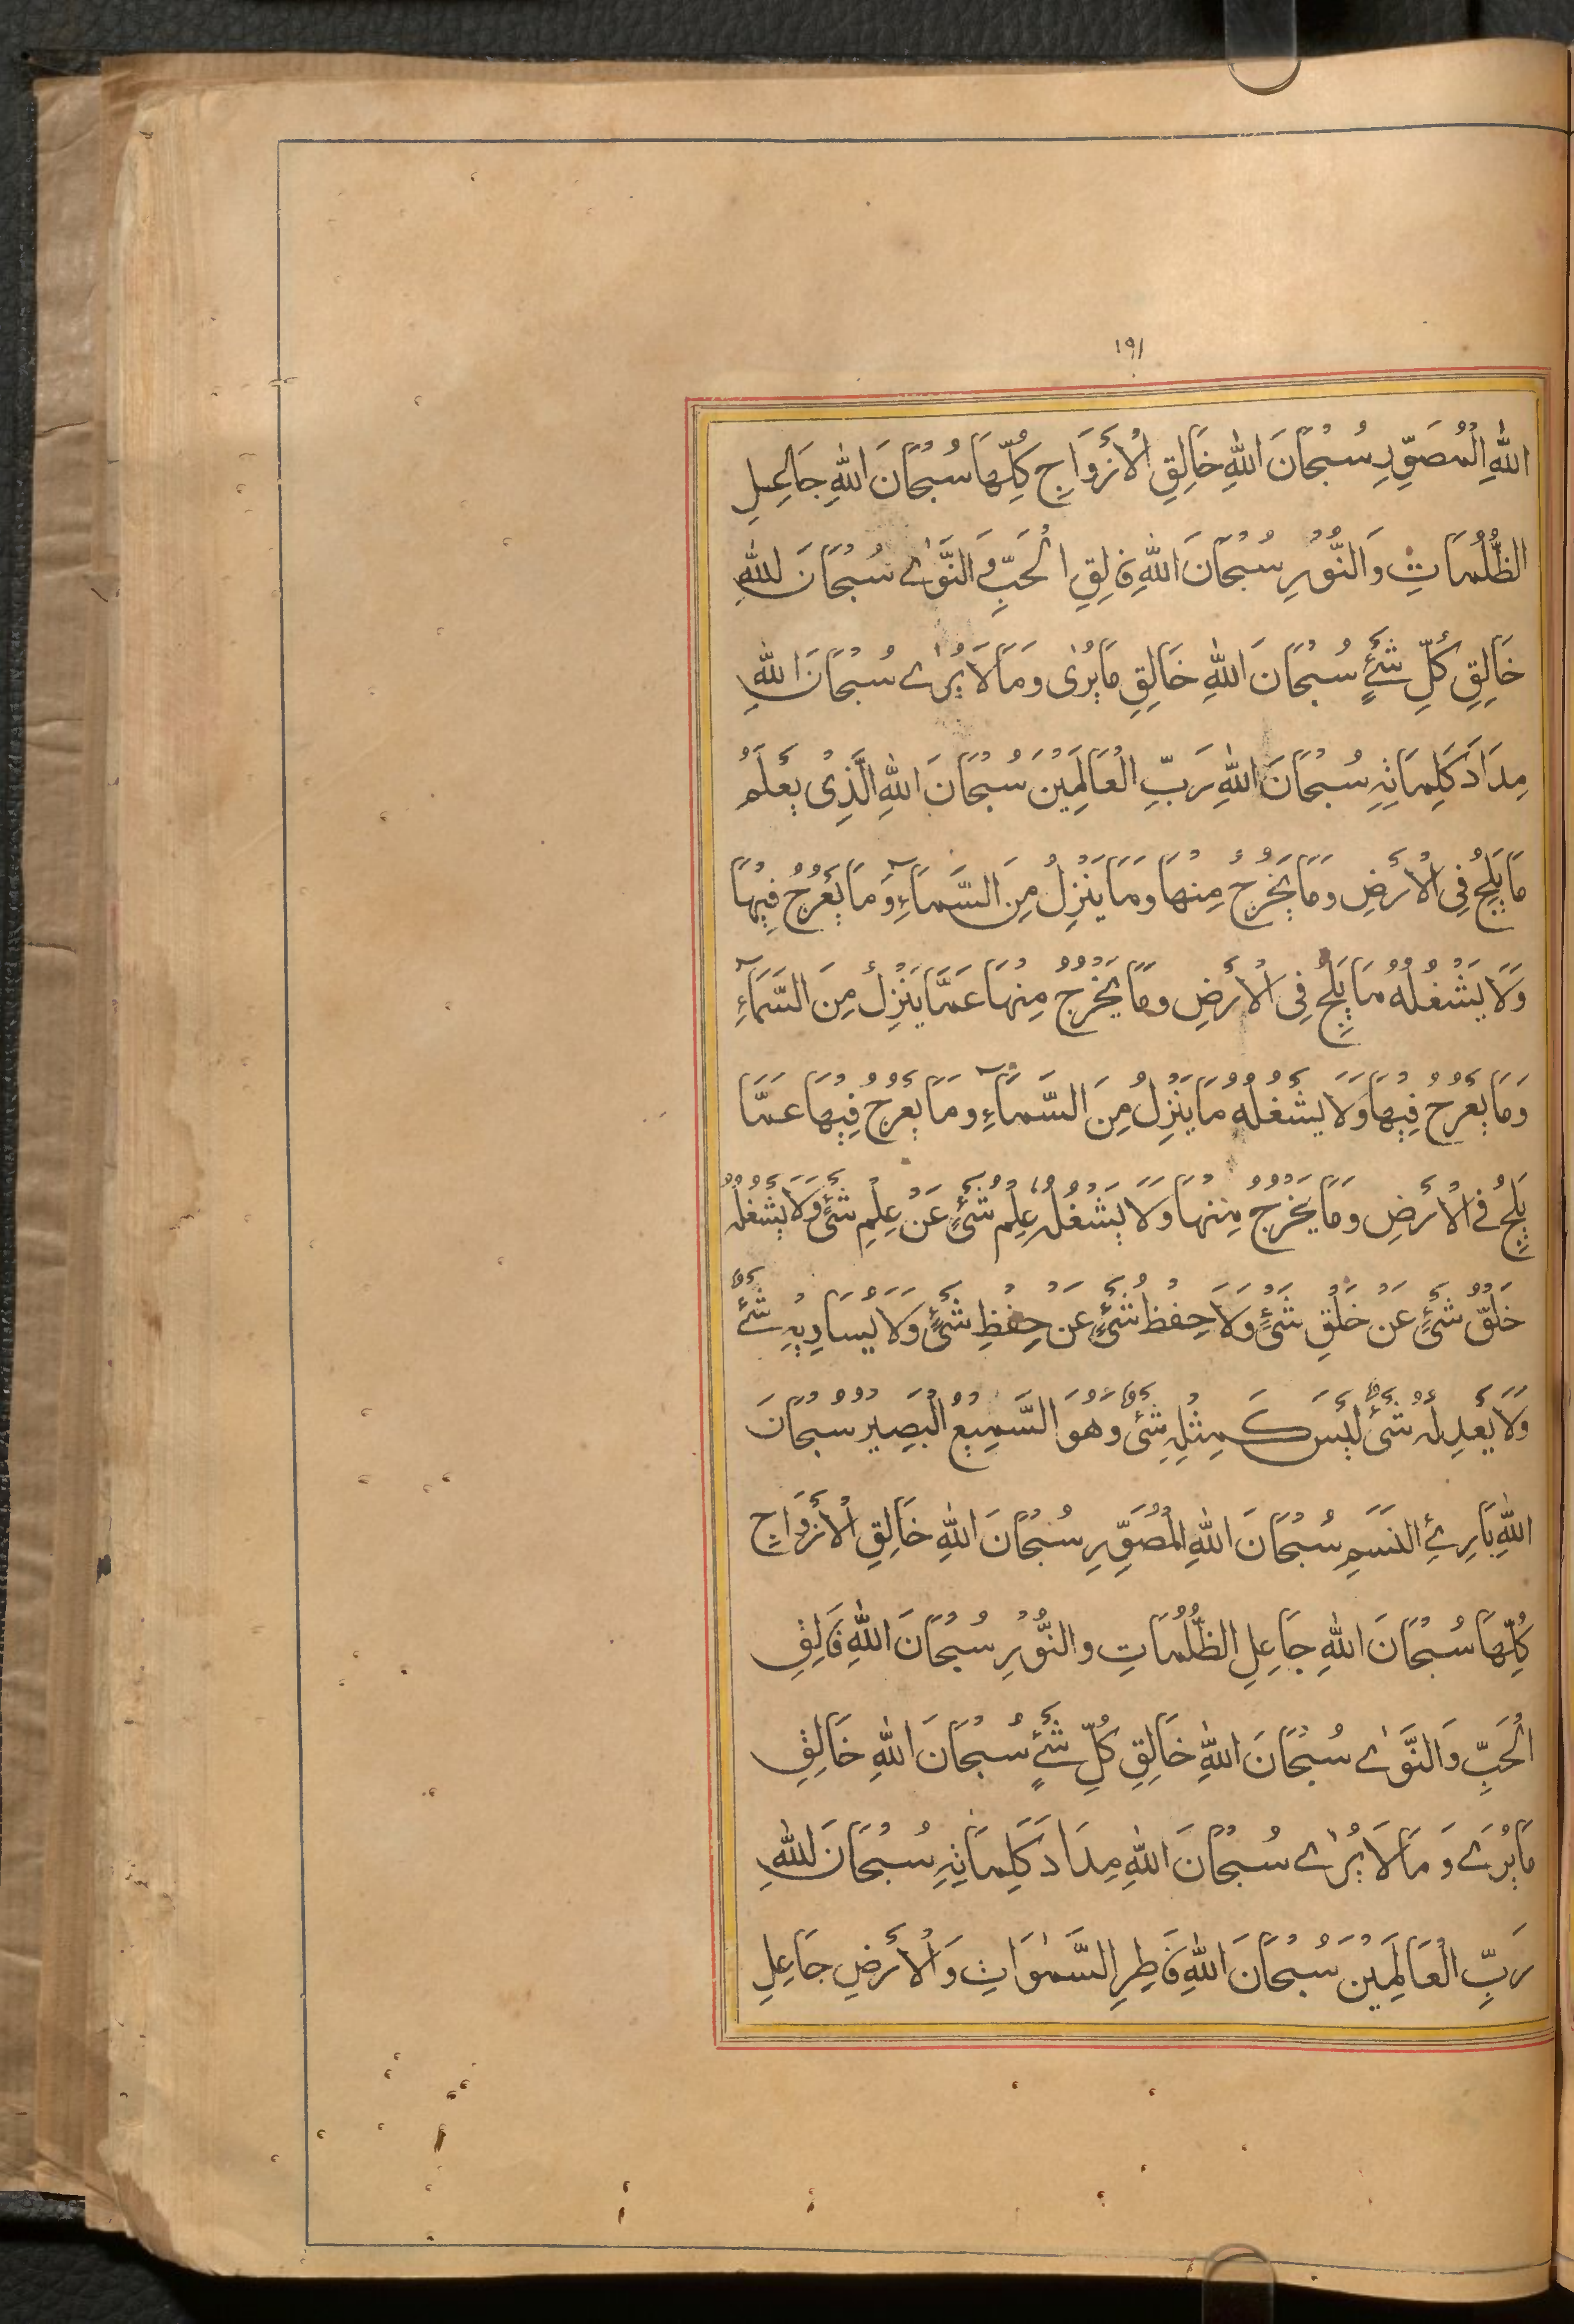 ١٩١
اللّٰهِ الْمُصَوِّرِ سُبْحَانَ اللّٰهِ خَالِقِ الْأَزْوَاجِ كُلِّهَا سُبْحَانَ اللّٰهِ جَاعِلِ
الظُّلُمَاتِ وَالنُّوْرِ سُبْحَانَ اللّٰهِ فَالِقِ الْحَبِّ وَالنَّوٰى سُبْحَانَ اللّٰهِ
خَالِقِ كُلِّ شَيْءٍ سُبْحَانَ اللّٰهِ خَالِقِ مَا يُرٰى وَمَا لَا يُرٰى سُبْحَانَ اللّٰهِ
مِدَادَ كَلِمَاتِهِ سُبْحَانَ اللّٰهِ رَبِّ الْعَالَمِيْنَ سُبْحَانَ اللّٰهِ الَّذِيْ يَعْلَمُ
مَا يَلِجُ فِى الْأَرْضِ وَمَا يَخْرُجُ مِنْهَا وَمَا يَنْزِلُ مِنَ السَّمَآءِ وَمَا يَعْرُجُ فِيْهَا
وَلَا يَشْغَلُهُ مَا يَلِجُ فِى الْأَرْضِ وَمَا يَخْرُجُ مِنْهَا عَمَّا يَنْزِلُ مِنَ السَّمَآءِ
وَمَا يَعْرُجُ فِيْهَا وَلَا يَشْغَلُهُ مَا يَنْزِلُ مِنَ السَّمَآءِ وَمَا يَعْرُجُ فِيْهَا عَمَّا
يَلِجُ فِى الْأَرْضِ وَمَا يَخْرُجُ مِنْهَا وَلَا يَشْغَلُهُ عِلْمُ شَيْءٍ عَنْ عِلْمِ شَيْءٍ وَلَا يَشْغَلُهُ
خَلْقُ شَيْءٍ عَنْ خَلْقِ شَيْءٍ وَلَا حِفْظُ شَيْءٍ عَنْ حِفْظِ شَيْءٍ وَلَا يُسَاوِيْهِ شَيْءٌ
وَلَا يَعْدِلُهُ شَيْءٌ لَيْسَ كَمِثْلِهِ شَيْءٌ وَهُوَ السَّمِيْعُ الْبَصِيْرُ سُبْحَانَ
اللّٰهِ بَارِئِ النَّسَمِ سُبْحَانَ اللّٰهِ الْمُصَوِّرِ سُبْحَانَ اللّٰهِ خَالِقِ الْأَزْوَاجِ
كُلِّهَا سُبْحَانَ اللّٰهِ جَاعِلِ الظُّلُمَاتِ وَالنُّوْرِ سُبْحَانَ اللّٰهِ فَالِقِ
الْحَبِّ وَالنَّوٰى سُبْحَانَ اللّٰهِ خَالِقِ كُلِّ شَيْءٍ سُبْحَانَ اللّٰهِ خَالِقِ
مَا يُرٰى وَمَا لَا يُرٰى سُبْحَانَ اللّٰهِ مِدَادَ كَلِمَاتِهِ سُبْحَانَ اللّٰهِ
رَبِّ الْعَالَمِيْنَ سُبْحَانَ اللّٰهِ فَاطِرِ السَّمٰوَاتِ وَالْأَرْضِ جَاعِلِ